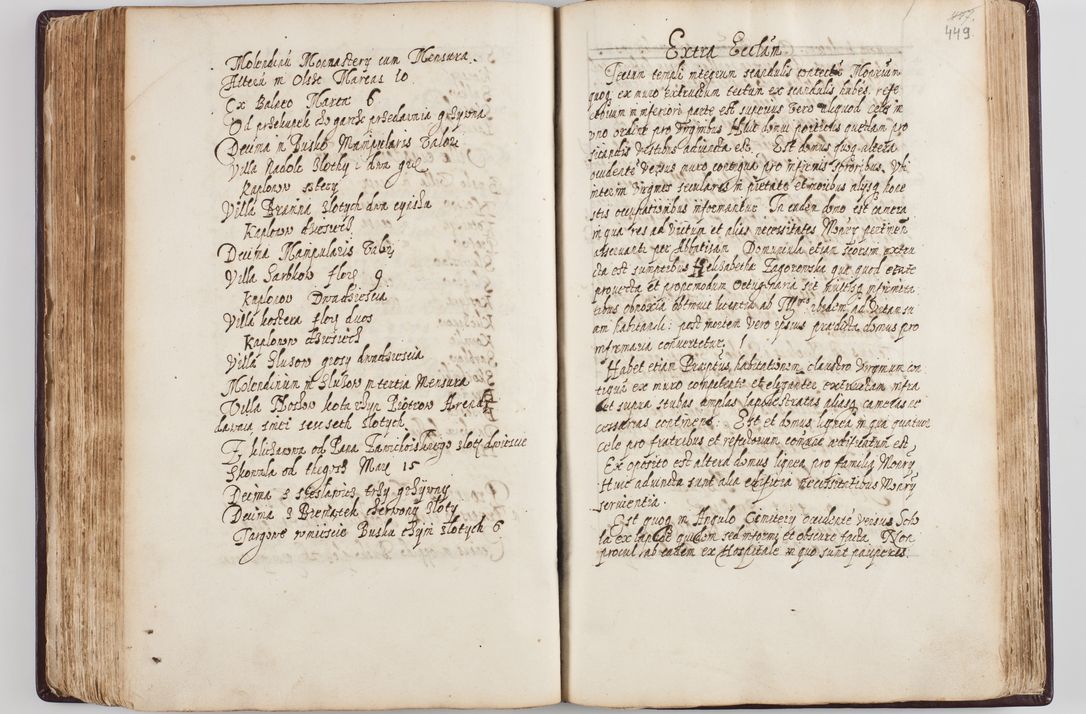 Molendinũ Monastery cum Mensura
Alterũ in Olsde Marcas 10
Ex Balneo Marca 6
Od przekupek z ogardz przedavnia grzywna
Decima in Busko Manipularis Valor
Villa Nadole Zlothy i dwa gro
Kaplonow sztery
Villa Branina zlotych dwa cyasha
Kaplonow dziesiecz
Decima Manipularis Valor
Villa Garbkow flore 9
Kaplonow Dwadziescia
Villa kostera flory duos
Kaplonow dziesiecz
Villa Slupow grosy dwadziescia
Molendinum in Slupow in tertia Mensura
Villa Noskow kota Piotrow Arenda
dawaia smeci seseseth zlotych
Z kliczanowa od Pana zloty dwiescie
Skowala od Marc 15
Decima z Steslawicz trzy grzywny
Decima z Brzenstek czerwony zloty
Targowe wmiescie Buska czyni zlotych 6
449
Extra Eccłam
Tectum templi integrum scandulis contectũ Monrium
quoq ex muro extructum tectum ex scandulis habet, refe
ctorium in inferiori parte est superius vero aliquod cele in
uno ordine pro Virginibus Huic domui porticus quedam pro
sicandis vestibus adiuncta est. Est domus quoq altera
occidente versus muro contigua pro infirmis sororibus. Vbi
interim virgines seculares in pietate et moribus alysq hone
stis occupationibus informantur. In eadem domo est camera
in qua res ad victum et alias necessitates Monry pertinen
asservantur per Abbatisam Domuncula etiam seorsim extru
cta est sumptibus Helisabetha Zagorowska que quod etate
provecta et propemodum octuagenaria sit multisq infirmita
tibus obnoxia obtinuit licentiã ab Illmo ibidem ad vitam su
am habitandi: post mortem vero ipsius prædicta domus pro
infirmaria convertetur.
Habet etiam Præptus habitationem claustro Virginum con
tiguã ex muro competente et eleganter extructam infra
et supra stubas amplas lapide stratas aliasq cameras ne
cessarias continens. Est et domus lignea in qua quatuor
cele pro fratribus et refectorium comune ædificatum est
Ex oposito est altera domus lignea pro familia Monry
Huic adiuncta sunt alia edificia necessitatibus Monry
servientia.
Est quoq in Angulo Cimitery occidente versus Scho
la ex lapide quidem sed informi et obscure facta. Non
procul ab eadem ex Hospitale in quo sunt pauperes.